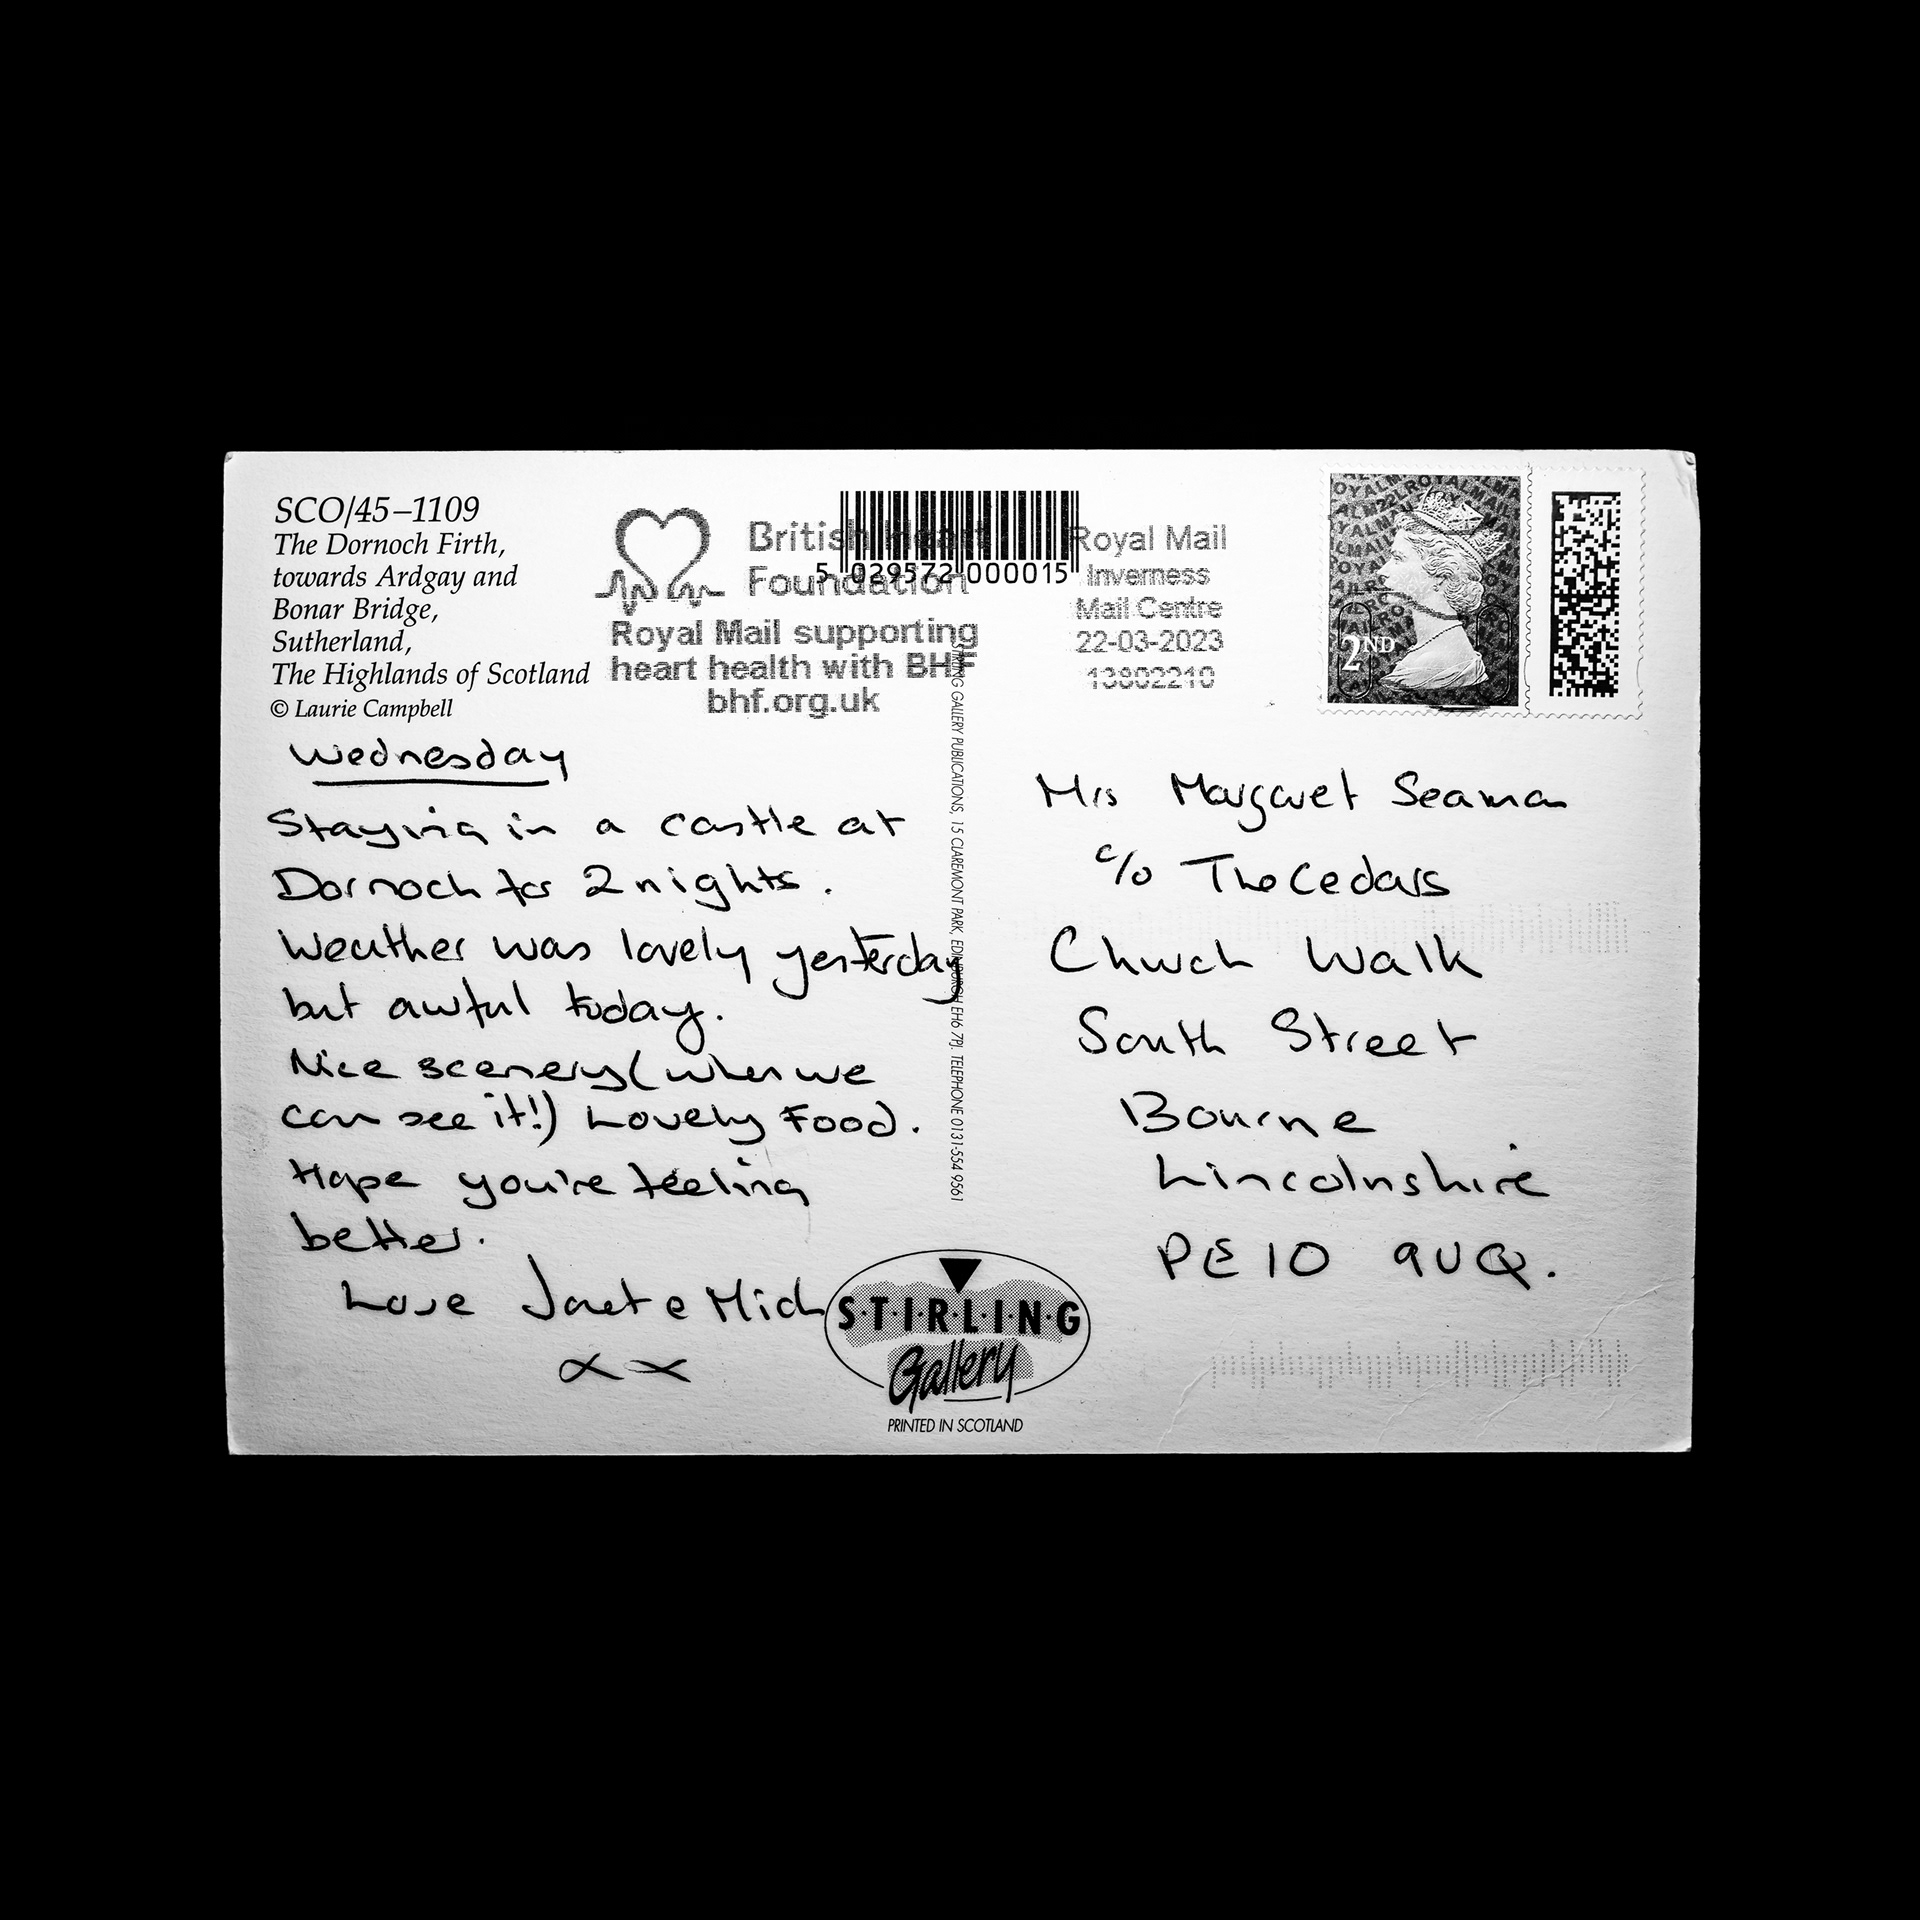 SCO/45–1109
The Dornoch Firth,
towards Ardgay and
Bonar Bridge,
Sutherland,
The Highlands of Scotland
© Laurie Campbell
British Heart
Foundation
Royal Mail supporting
heart health with BHF
bhf.org.uk
5 029572 000015
Royal Mail
Inverness
Mail Centre
22-03-2023
13802210
2ND
Wednesday
Staying in a castle at
Dornoch for 2 nights.
Weather was lovely yesterday
but awful today.
Nice scenery (when we
can see it!) Lovely Food.
Hope you're feeling
better.
Love Janet e Mich
xx
STIRLING GALLERY PUBLICATIONS, 15 CLAREMONT PARK, EDINBURGH EH6 7PJ. TELEPHONE 0131-554 9561
Mrs Margaret Seaman
c/o The Cedars
Church Walk
South Street
Bourne
Lincolnshire
PE10 9UQ.
S·T·I·R·L·I·N·G
Gallery
PRINTED IN SCOTLAND